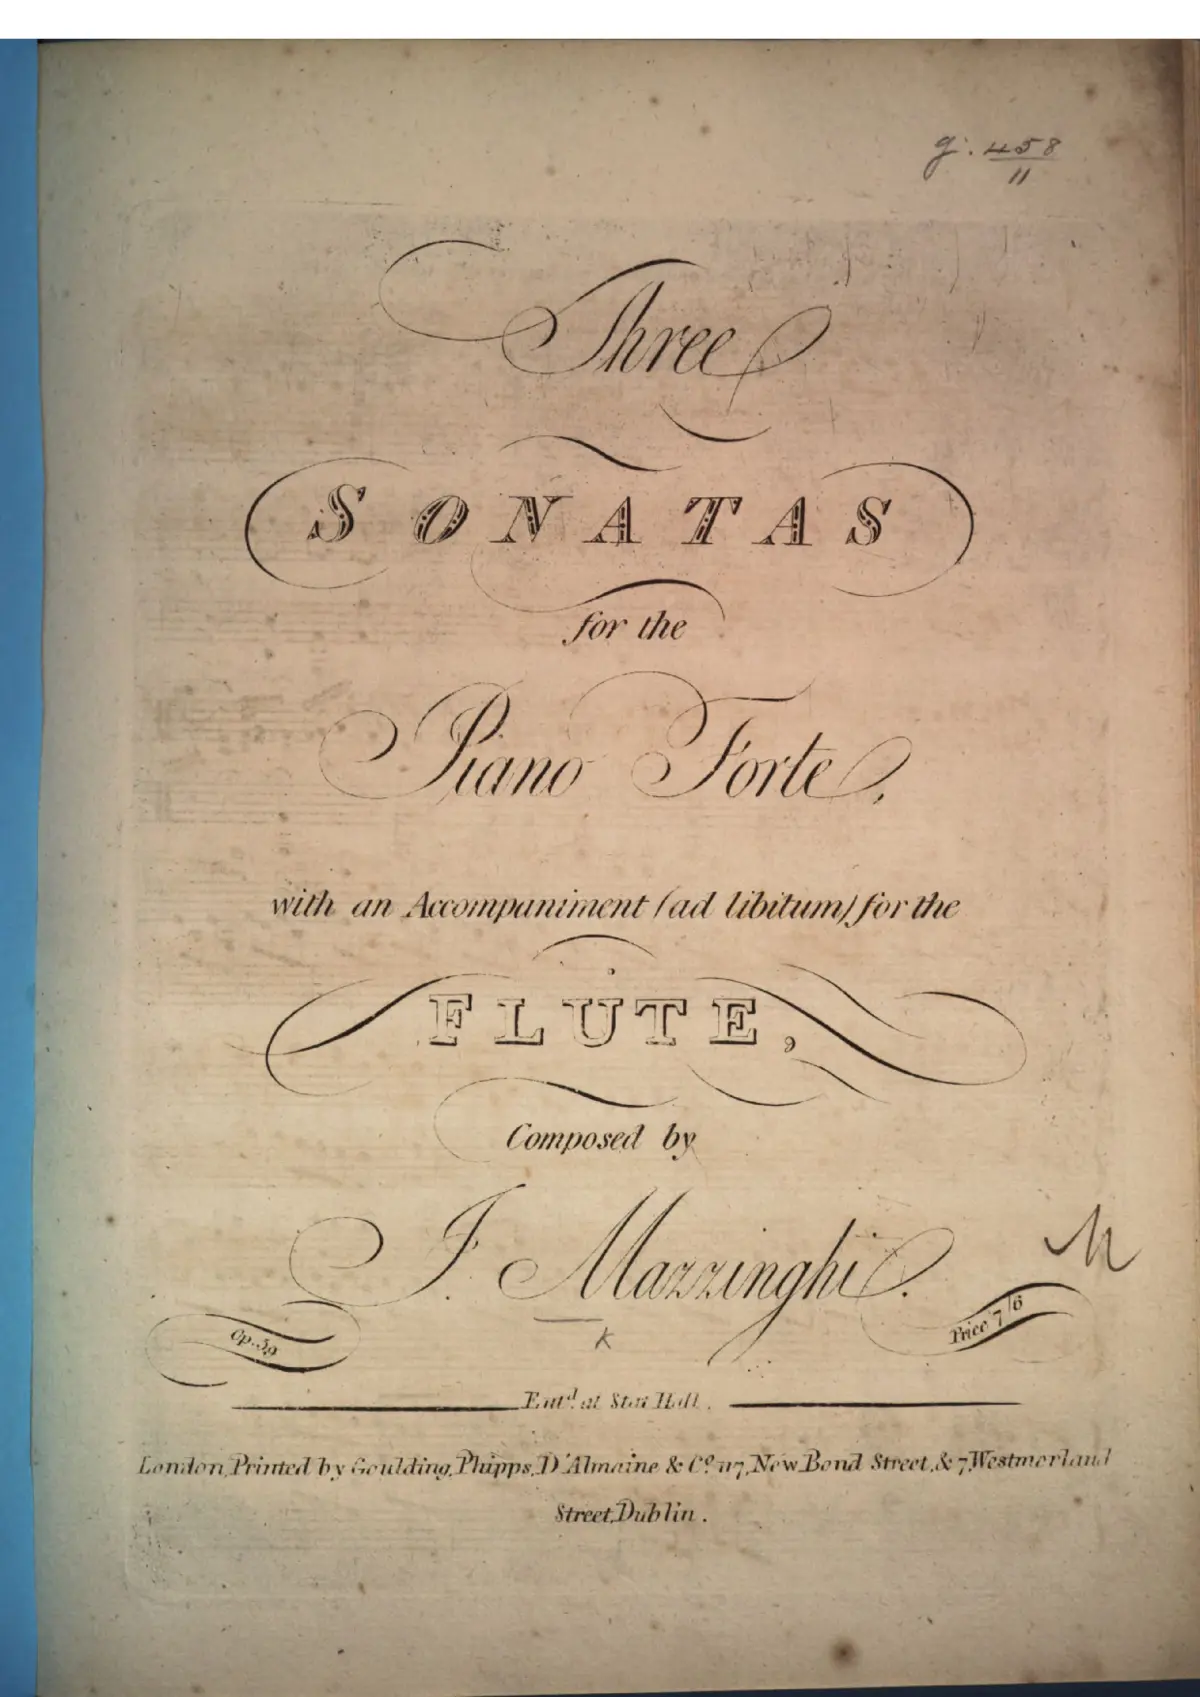 g. 458
11
Three
SONATAS
for the
Piano Forte,
with an Accompaniment (ad libitum) for the
FLUTE,
Composed by
J. Mazzinghi.
M
Op. 39
Price 7/6
K
Ent.d at Stat Hall.
London, Printed by Goulding, Phipps, D'Almaine & Co. 117, New Bond Street, & 7, Westmorland
Street, Dublin.